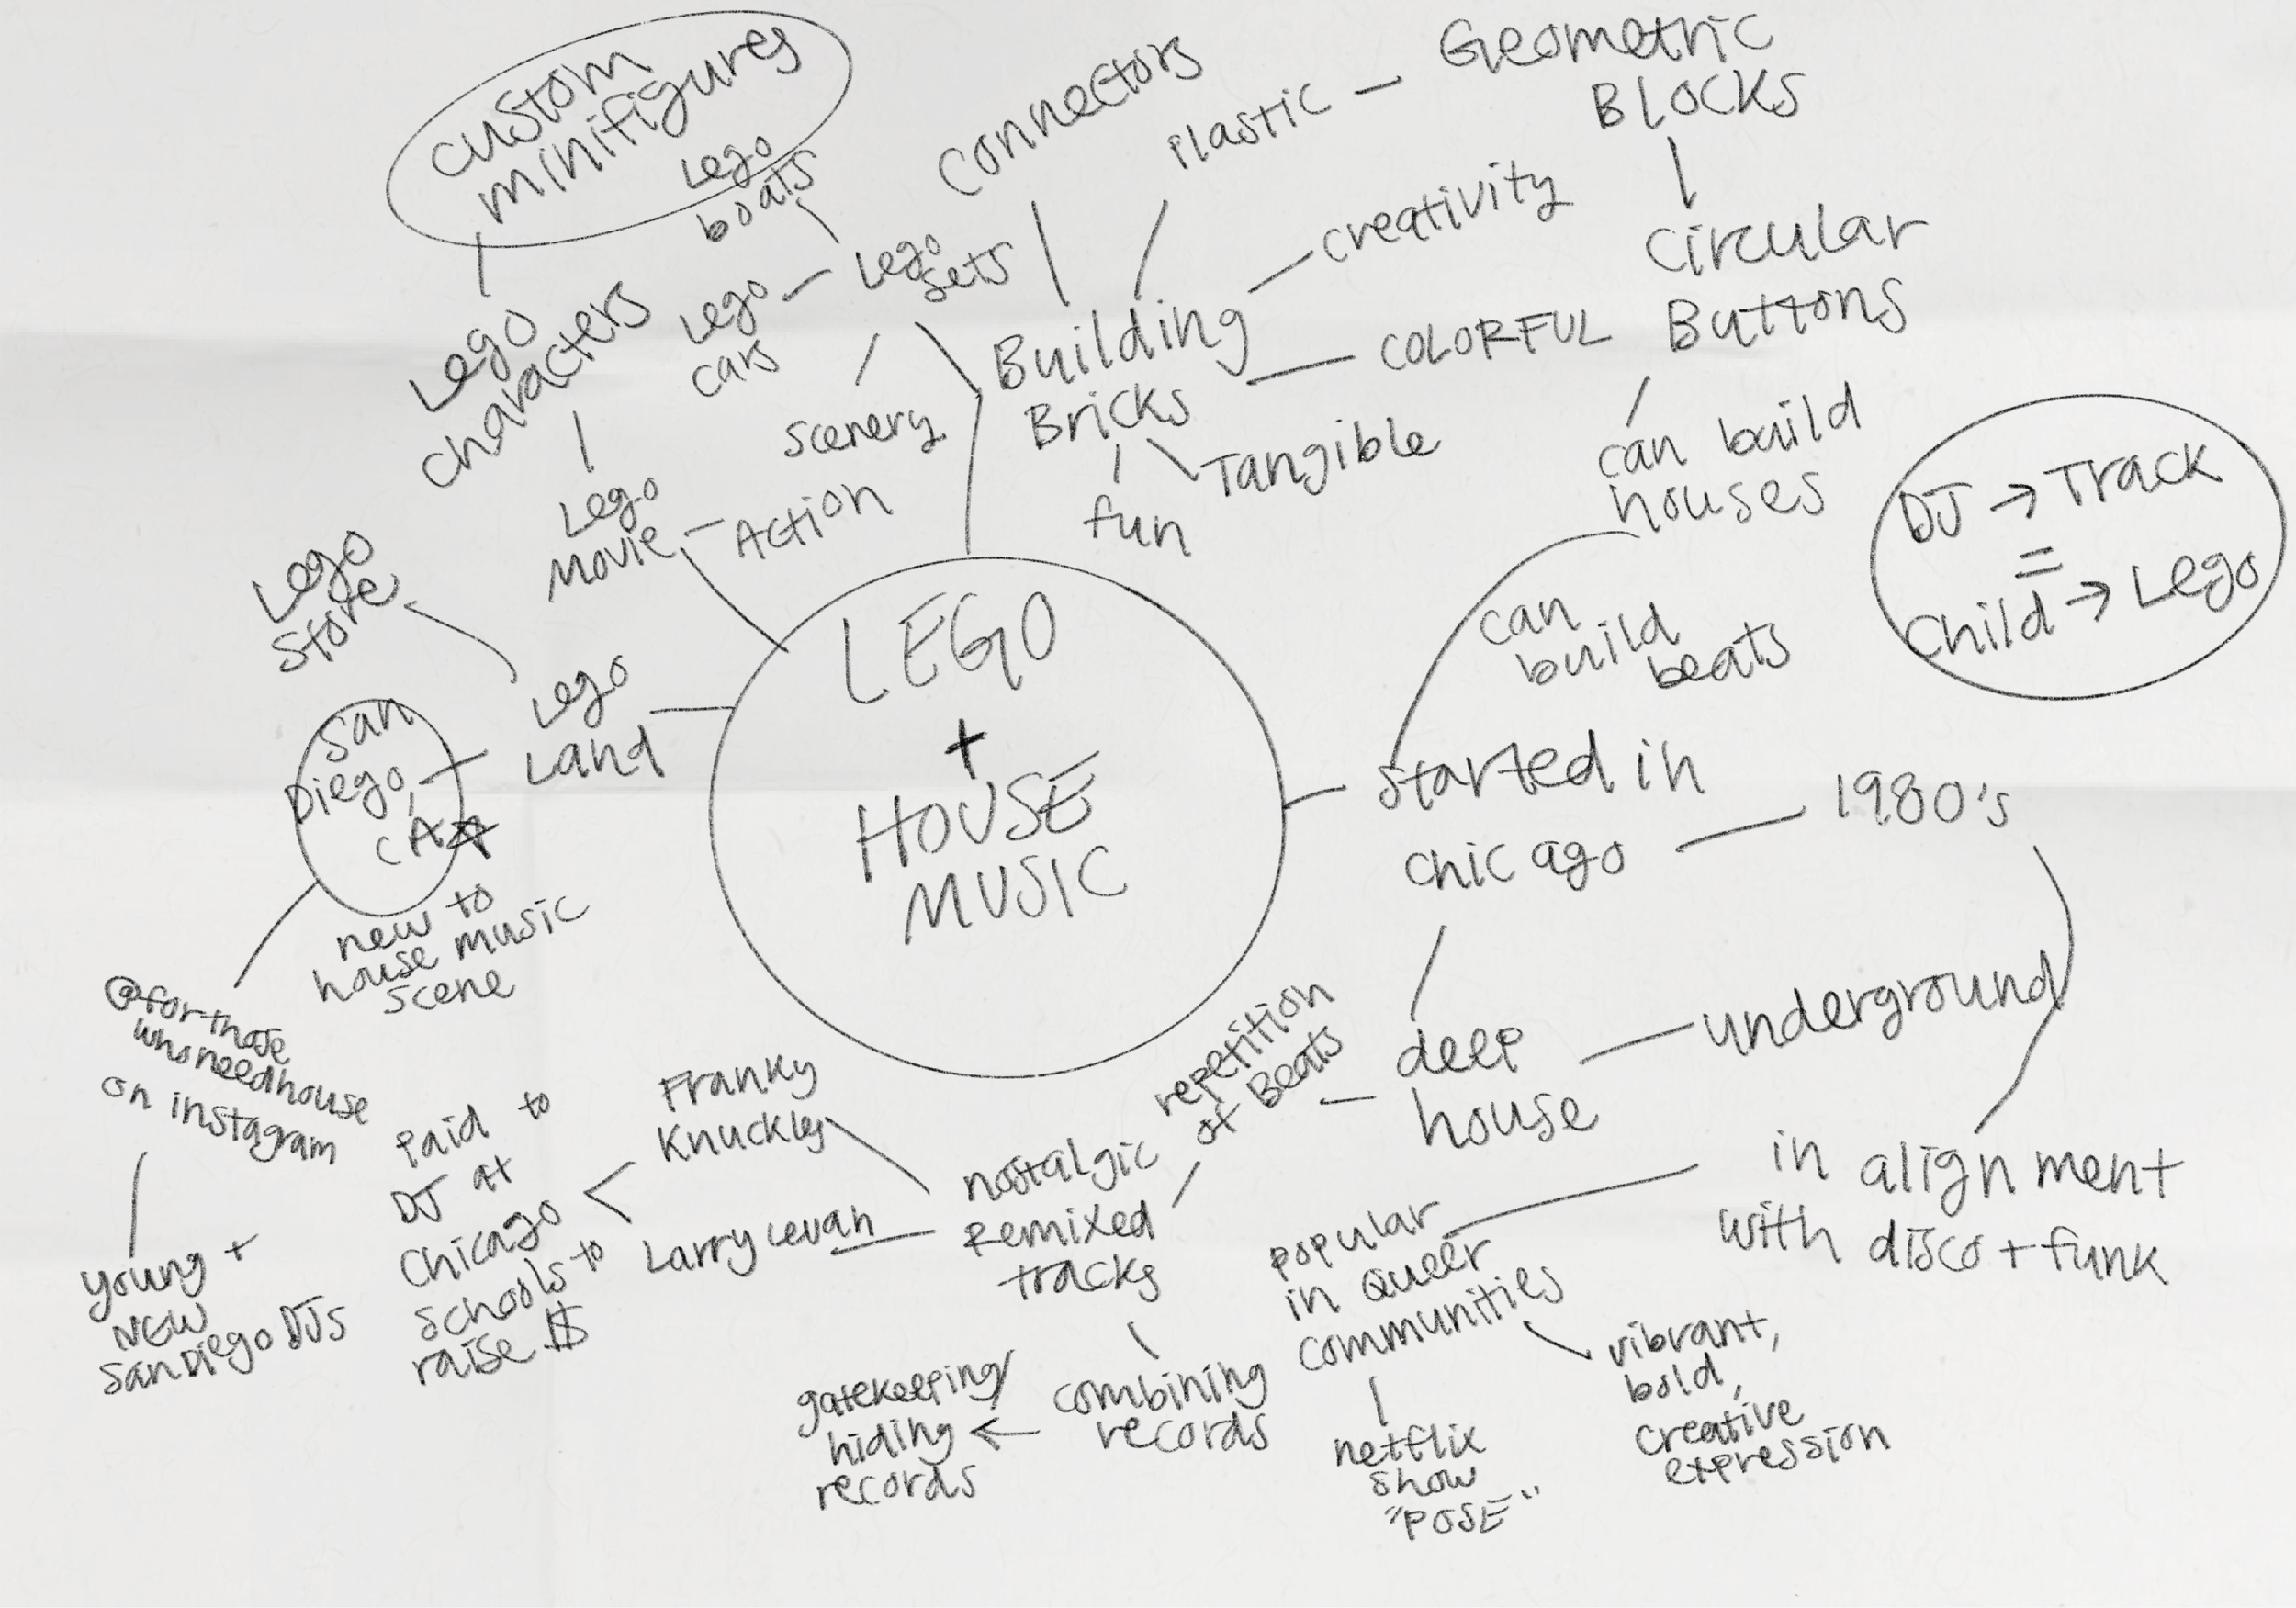 custom
minifigures
Lego
boats
Lego
sets
Lego
cars
Scenery
Lego
characters
Lego
Movie
Action
connectors
Plastic
Geometric
BLOCKS
creativity
Circular
Buttons
Building
Bricks
COLORFUL
fun
Tangible
can build
houses
DJ → Track
=
Child → Lego
can
build
beats
Lego
Store
Lego
Land
San
Diego,
CA
new to
house music
scene
LEGO
+
HOUSE
MUSIC
Started in
chicago
1980's
deep
house
underground
in alignment
with disco + funk
repetition
of Beats
nostalgic
Remixed
tracks
Franky
Knuckles
Larry Levan
Paid to
DJ at
Chicago
Schools to
raise $
@forthose
whoneedhouse
on instagram
young +
NEW
San Diego DJs
combining
records
gatekeeping/
hiding
records
popular
in Queer
communities
netflix
show
"POSE"
vibrant,
bold,
creative
expression